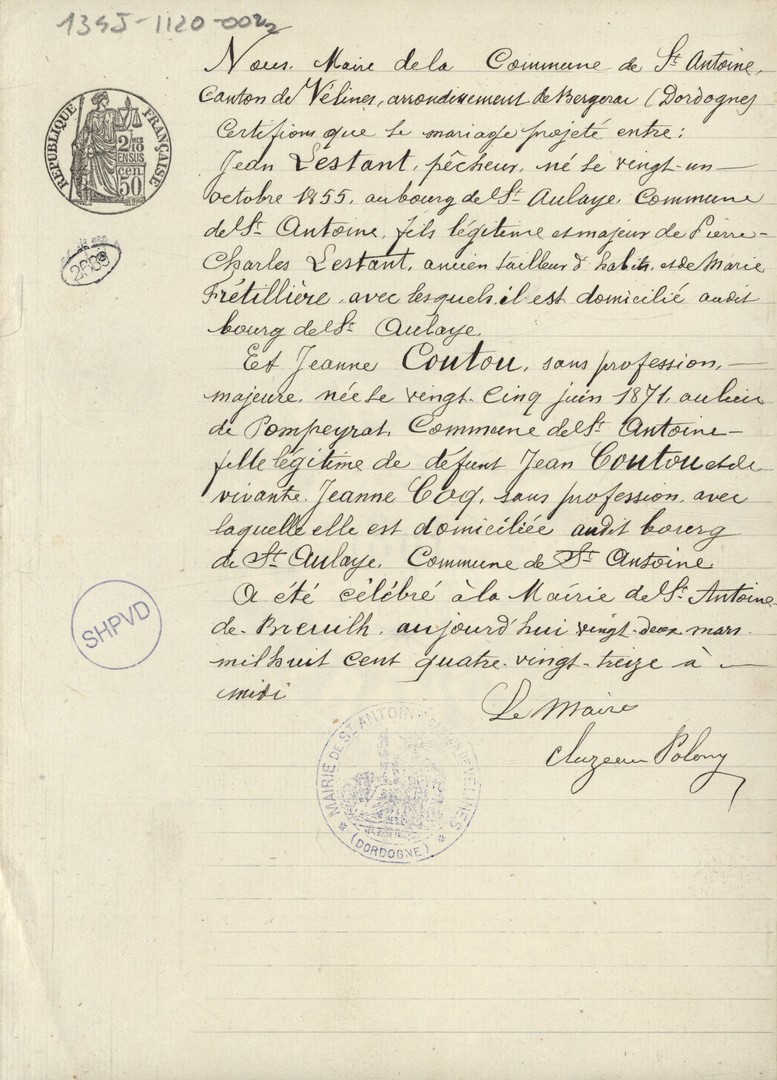 134J-1120-0022
RÉPUBLIQUE FRANÇAISE
2/10
EN SUS
50 cen
2689
Nous, Maire de la Commune de St Antoine,
Canton de Vélines, arrondissement de Bergerac (Dordogne)
Certifions que le mariage projeté entre :
Jean Lestant, pêcheur, né le vingt-un
octobre 1855, au bourg de St Aulaye, Commune
de St Antoine, fils légitime et majeur de Pierre-
Charles Lestant, ancien tailleur d'habits, et de Marie
Frétillière, avec lesquels il est domicilié audit
bourg de St Aulaye.
Et Jeanne Coutou, sans profession,
majeure, née le vingt-cinq juin 1871, au lieu
de Pompeyrat, Commune de St Antoine -
fille légitime de défunt Jean Coutou et de
vivante Jeanne Coq, sans profession, avec
laquelle elle est domiciliée audit bourg
de St Aulaye, Commune de St Antoine
A été célébré à la Mairie de St Antoine-
de-Breuilh, aujourd'hui vingt-deux mars
mil huit cent quatre-vingt-treize à
midi
Le Maire
Cluzeau Polony
SHPVD
MAIRIE DE ST ANTOINE VÉLINES
(DORDOGNE)